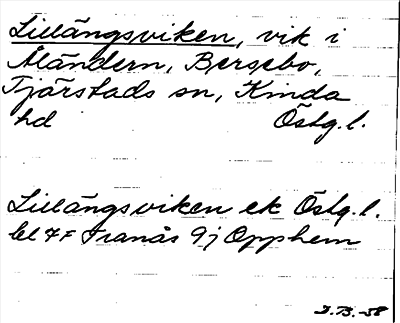 Lillängsviken, vik i
Åländern, Bersebo,
Tjärstads sn, Kinda
hd Östg.l.
Lillängsviken ek Östg.l.
bl 4F Tranås 9j Opphem
J.B.-58